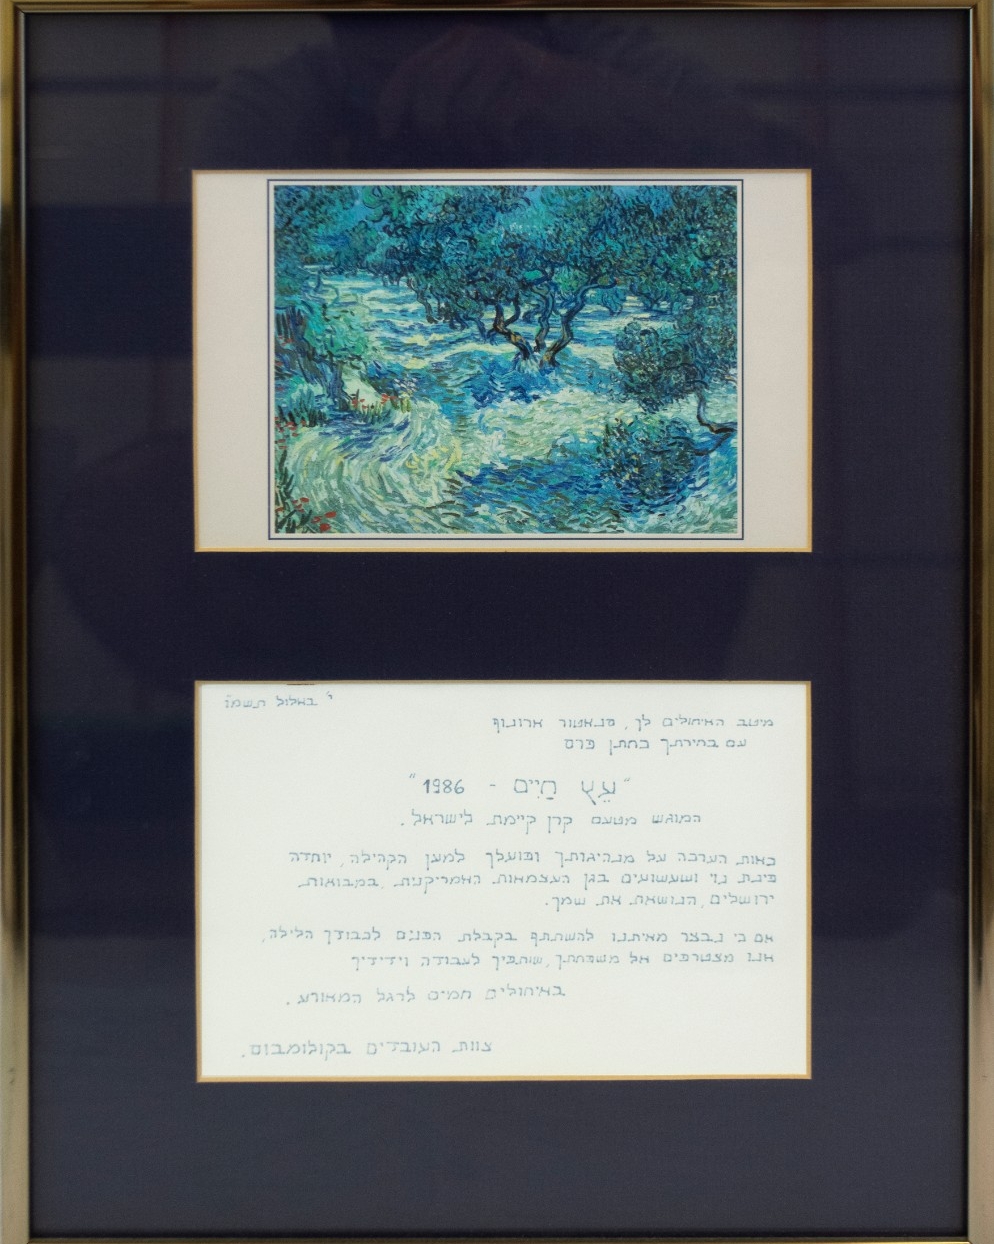 י' באלול תשמ"ו
מיטב האיחולים לך, סנאטור ארונוף
עם בחירתך כחתן פרס
"עֵץ חַיִּים - 1986"
המוגש מטעם קרן קיימת לישראל.
כאות הערכה על מנהיגותך ופועלך למען הקהילה, יוחדה
פינת נוי ושעשועים בגן העצמאות האמריקנית, במבואות
ירושלים, הנושאת את שמך.
אם כי נבצר מאיתנו להשתתף בקבלת הפנים לכבודך הלילה,
אנו מצטרפים אל משפחתך, שותפיך לעבודה וידידיך
באיחולים חמים לרגל המאורע.
צוות העובדים בקולומבוס.